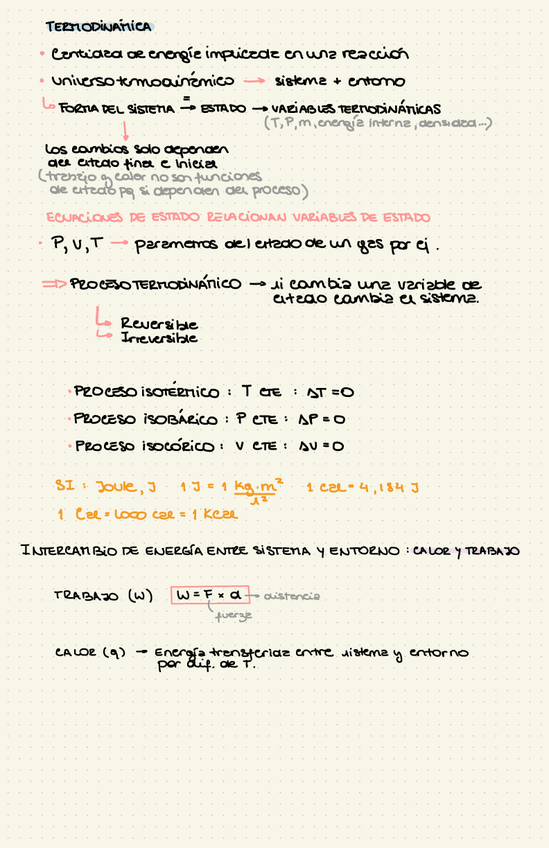 TERMODINÁMICA
• Cantidad de energía implicada en una reacción
• Universo termodinámico → sistema + entorno
↳ FORMA DEL SISTEMA =→ ESTADO → VARIABLES TERMODINÁMICAS
(T, P, m, energía interna, densidad...)
Los cambios solo dependen
del estado final e inicial
(trabajo y calor no son funciones
de estado pq si dependen del proceso)
ECUACIONES DE ESTADO RELACIONAN VARIABLES DE ESTADO
• P, V, T → parametros del estado de un gas por ej.
⇒ PROCESO TERMODINÁMICO → si cambia una variable de
estado cambia el sistema.
↳ Reversible
↳ Irreversible
• PROCESO ISOTÉRMICO : T CTE : ΔT = 0
• PROCESO ISOBÁRICO : P CTE : ΔP = 0
• PROCESO ISOCÓRICO : V CTE : ΔV = 0
SI : Joule, J 1 J = 1 kg·m²/s² 1 cal = 4,184 J
1 Cal = 1,000 cal = 1 Kcal
INTERCAMBIO DE ENERGÍA ENTRE SISTEMA Y ENTORNO : CALOR y TRABAJO
TRABAJO (W) W = F × d → distancia
fuerza
CALOR (q) → Energía transferida entre sistema y entorno
por dif. de T.